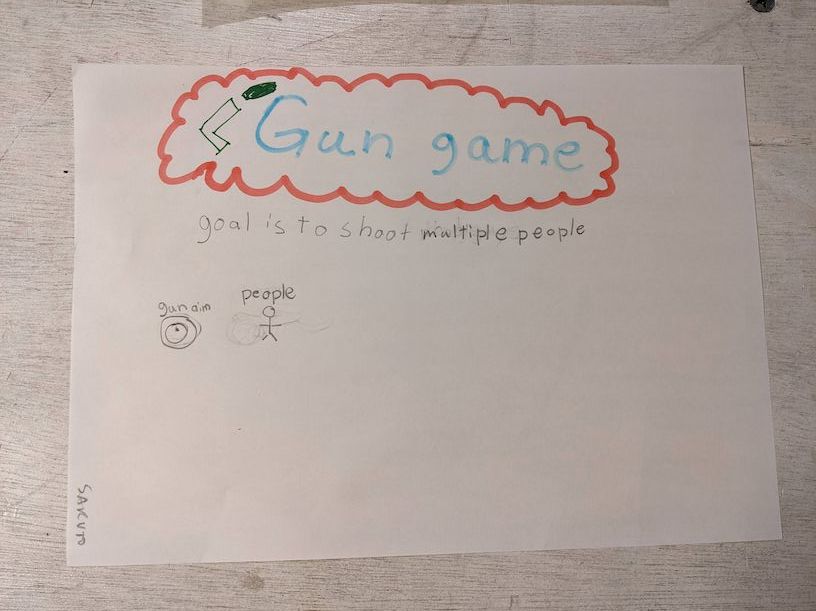 Gun game
goal is to shoot multiple people
gun aim
people
SAKUTO